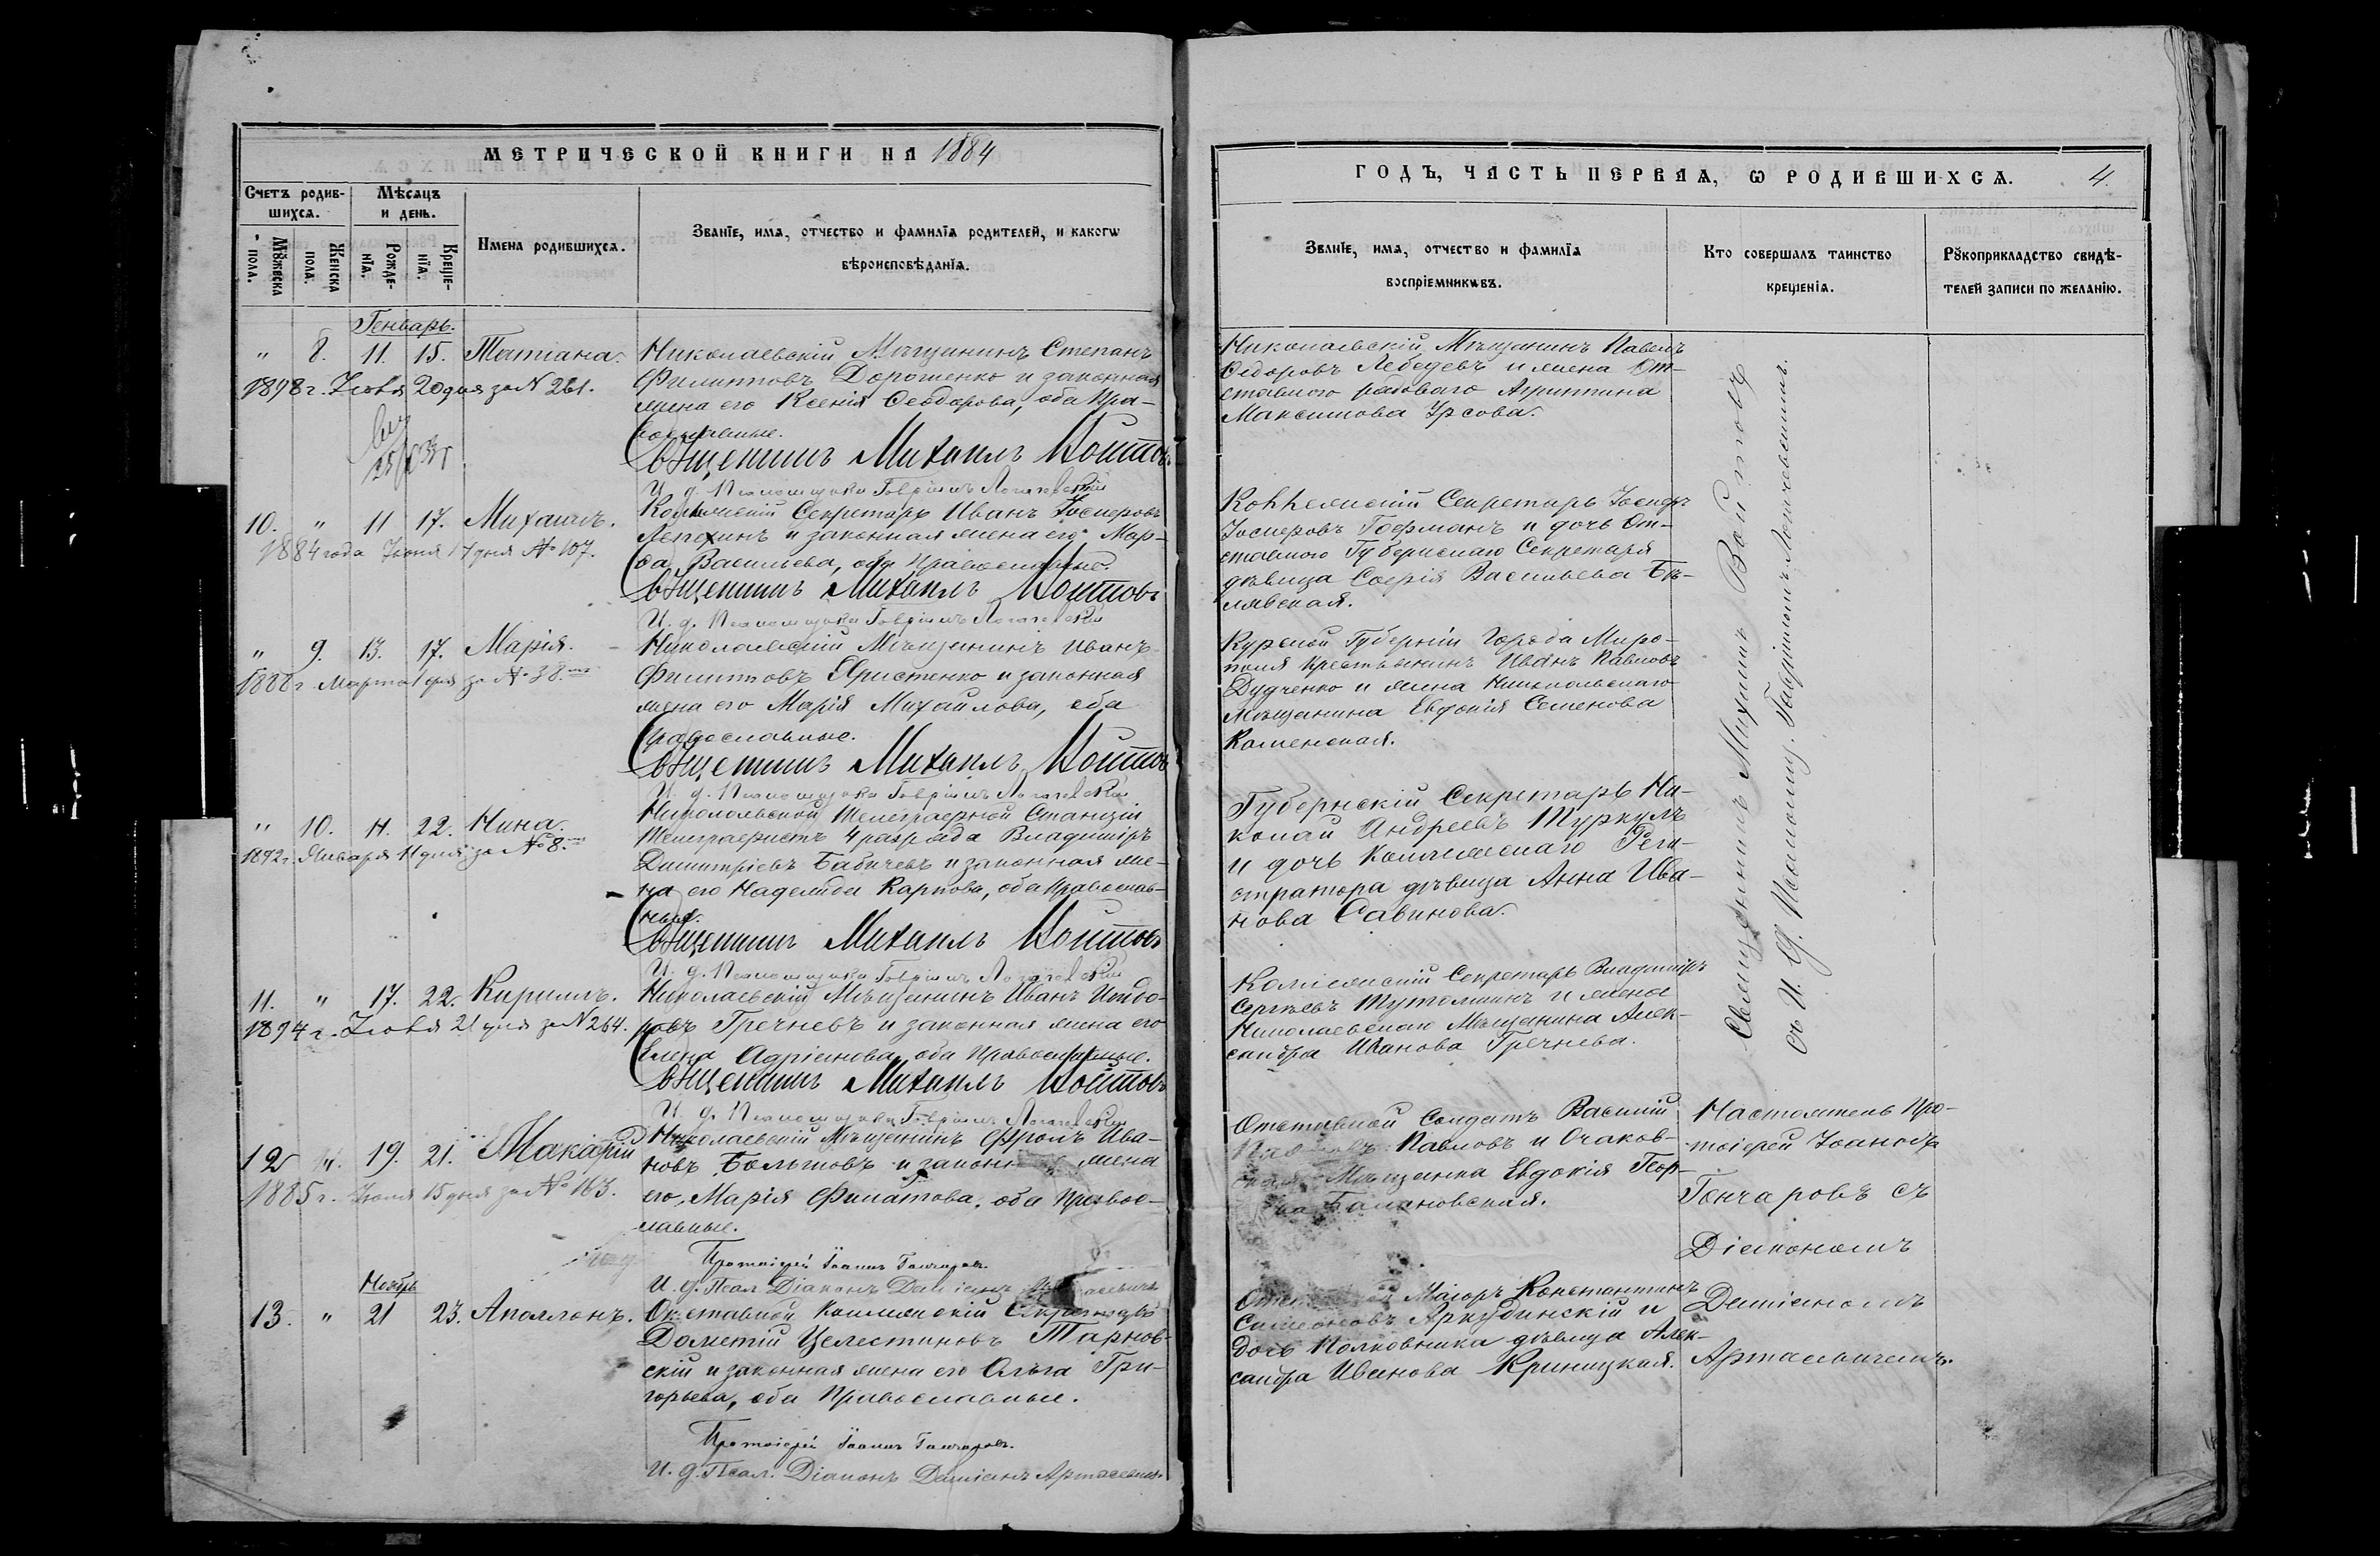 МЕТРИЧЕСКОЙ КНИГИ НА 1884
Счетъ родив-
шихся.
Мѣсяцъ
и день.
Мужеска
пола.
Женска
пола.
Рожде-
нїя.
Креще-
нїя.
Имена родившихся.
Званїе, имя, отчество и фамилїа родителей, и какогѡ
вѣроисповѣданїя.
Генварь.
" 8. 11. 15. Татіана.
1898 г. Іюля 20 дня за № 261.
Николаевскій Мѣщанинъ Степанъ
Филиповъ Дорошенко и законная
жена его Ксенія Ѳеодорова, оба Пра-
вославные.
Священникъ Михаилъ Войтовъ
И. д. Псаломщика Гавріилъ
10. " 11 17. Михаилъ.
1884 года Іюня 17 дня № 107.
Коллежскій Секретарь Иванъ Іосифовъ
Лепехинъ и законная жена его Мар-
ѳа Васильева, оба Православные.
Священникъ Михаилъ Войтовъ
И. д. Псаломщика Гавріилъ
" 9. 13. 17. Марія.
1888 г. Марта 1 дня за № 38.
Николаевскій Мѣщанинъ Иванъ
Филиповъ Христенко и законная
жена его Марія Михайлова, оба
Православные.
Священникъ Михаилъ Войтовъ
И. д. Псаломщика Гавріилъ
" 10. 14. 22. Нина.
1892 г. Января 11 дня за № 8.
Николаевской Телеграфной Станціи
Телеграфистъ 4 разряда Владиміръ
Димитріевъ Бабичевъ и законная же-
на его Надежда Карпова, оба Православ-
ные.
Священникъ Михаилъ Войтовъ
И. д. Псаломщика Гавріилъ
11. " 17. 22. Кириллъ.
1894 г. Іюля 21 дня за № 264.
Николаевскій Мѣщанинъ Иванъ Исидо-
ровъ Гречневъ и законная жена его
Елена Адріанова, оба Православные.
Священникъ Михаилъ Войтовъ
И. д. Псаломщика Гавріилъ
12 19. 21. Макарій
1885 г. Іюня 15 дня за № 163.
Николаевскій Мѣщанинъ Фролъ Ива-
новъ Болытовъ и законная жена
его, Марія Филатова, оба Правос-
лавные.
Протоіерей Іоаннъ Гончаровъ.
И. д. Псал. Діаконъ Даміанъ
Ноябрь
13. " 21 23. Аполлонъ.
Отставной Коллежскій Секретарь
Дометій Целестиновъ Тарнов-
скій и законная жена его Ольга Гри-
горьева, оба Православные.
Протоіерей Іоаннъ Гончаровъ.
И. д. Псал. Діаконъ Даміанъ Артасевичъ.
ГОДЪ, ЧАСТЬ ПЕРВАЯ, Ѡ РОДИВШИХСѦ. 4.
Званїе, имя, отчество и фамилїа
воспрїемникѡвъ.
Кто совершалъ таинство
крещенїя.
Рукоприкладство свидѣ-
телей записи по желанїю.
Николаевскій Мѣщанинъ Павелъ
Ѳедоровъ Лебедевъ и жена От-
ставного рядоваго Агриппина
Максимова Урсова.
Коллежскій Секретарь Іосифъ
Іосифовъ Гофманъ и дочь От-
ставного Губернскаго Секретаря
дѣвица Софія Васильева Бѣ-
лявская.
Курской Губерніи Города Миро-
полья крестьянинъ Иванъ Павловъ
Дудченко и жена Николаевскаго
Мѣщанина Евфимія Семенова
Каменская.
Губернскій Секретарь Ни-
колай Андреевъ Туркулъ
и дочь Коллежскаго Реги-
стратора дѣвица Анна Ива-
нова Савинова.
Коллежскій Секретарь Владиміръ
Сергѣевъ Тутолминъ и жена
Николаевскаго Мѣщанина Алек-
сандра Иванова Гречнева.
Священникъ Михаилъ Войтовъ
съ И. Д. Псаломщ. Гавріиломъ
Отставной Солдатъ Василій
Павловъ и Очаков-
Мѣщанка Евдокія Геор-
Балановская.
Настоятель Про-
тоіерей Іоаннъ
Гончаровъ съ
Діакономъ
Даміаномъ
Артасевичемъ.
Маіоръ Константинъ
Симеоновъ Аркудинскій и
дочь Полковника дѣвица Алек-
сандра Иванова Криницкая.